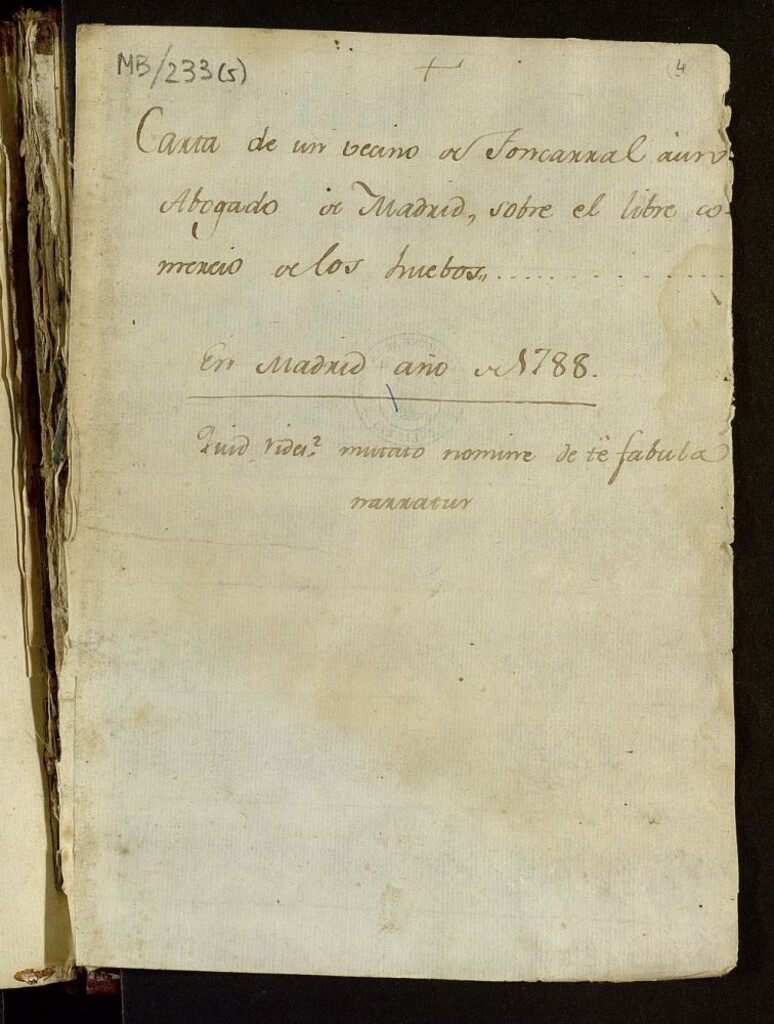 MB/233(5)
+
4
Carta de un vecino de Foncarral àun
Abogado de Madrid, sobre el libre co-
mercio de los huebos,,..............
En Madrid año de 1788.
Quid rides? mutato nomine de të fabula
narratur